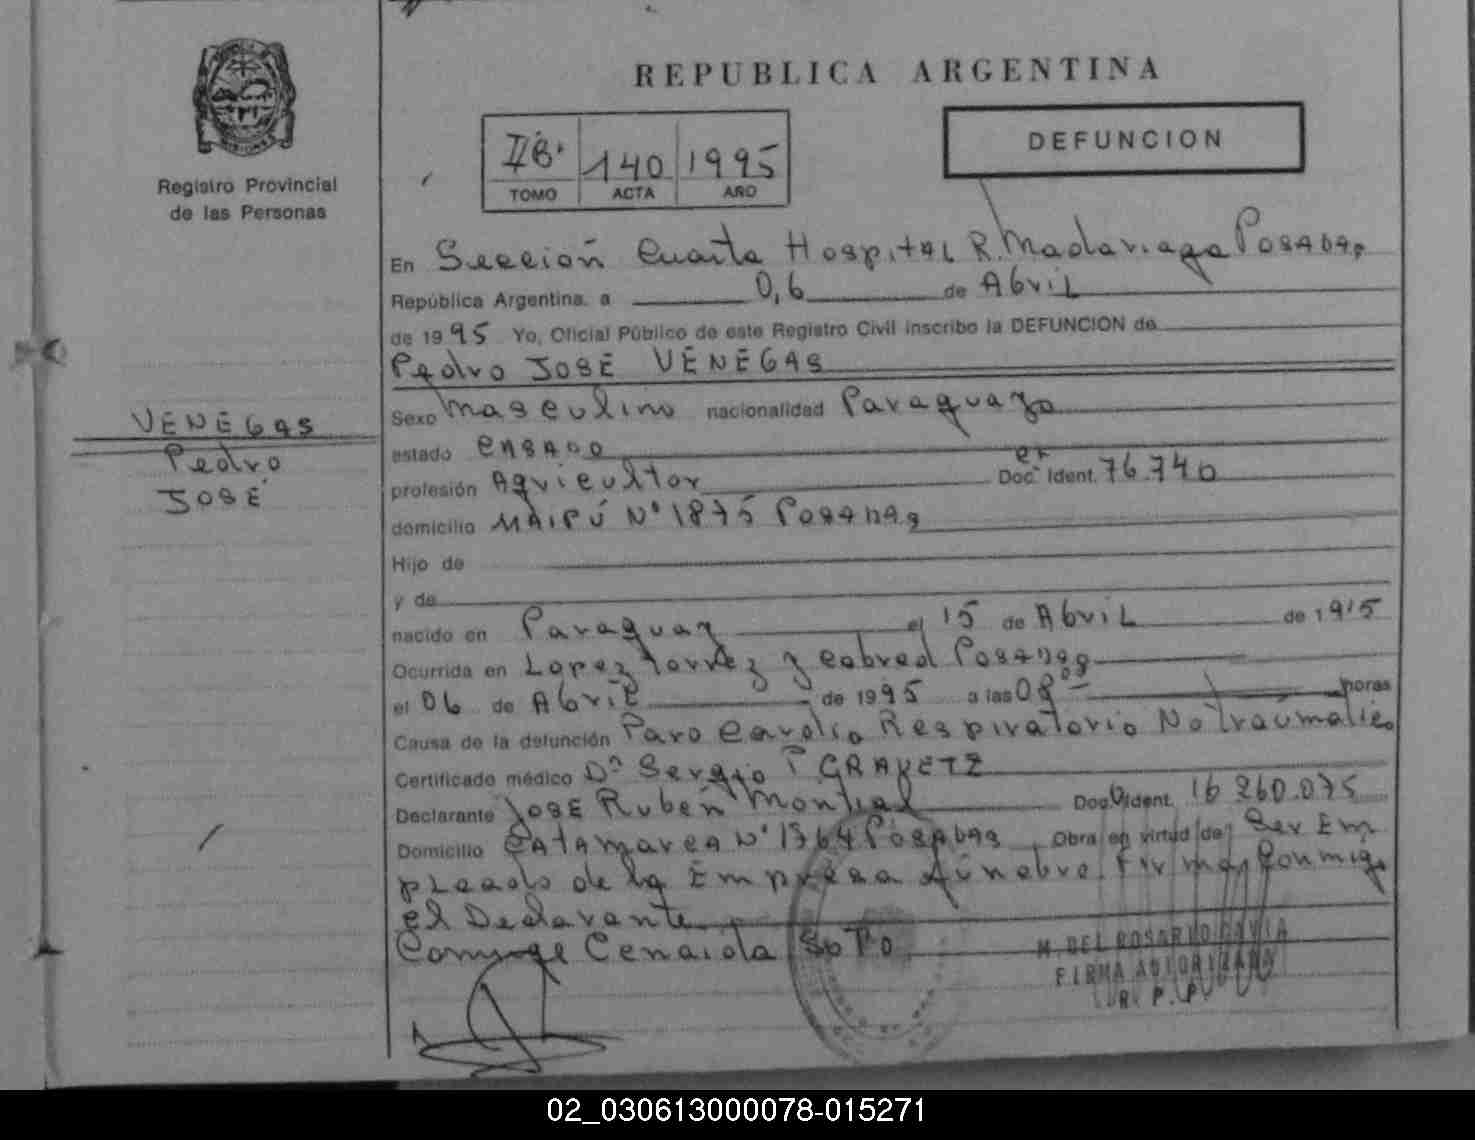 REPUBLICA ARGENTINA
Registro Provincial
de las Personas
IIB. 140 1995
TOMO ACTA AÑO
DEFUNCION
En Sección Cuarta Hospital R. Madariaga Posadas
República Argentina, a 0,6 de Abril
de 1995 Yo, Oficial Público de este Registro Civil inscribo la DEFUNCION de
Pedro JOSÉ VENEGAS
VENEGAS
Pedro
JOSÉ
Sexo Masculino nacionalidad Paraguayo
estado CASADO
profesión Agricultor Doc. Ident. 76.740
domicilio MAIPÚ Nº 1875 Posadas
Hijo de
y de
nacido en Paraguay el 15 de Abril de 1915
Ocurrida en Lopez Torrez y Cabred Posadas
el 06 de Abril de 1995 a las 08 horas
Causa de la defunción Paro Cardio Respiratorio No traúmatico
Certificado médico Dr Sergio
Declarante JOSE Rubén Montiel Doc. Ident. 16 260.075
Domicilio CATAMARCA Nº 1764 POSADAS Obra en virtud de Ser Em
pleado de la Empresa fúnebre. Firma Conmigo
el Declarante
Conyuge Cenaida SOTO
M. DEL ROSARIO GAVIA
FIRMA AUTORIZADA
R. P. P.
02_030613000078-015271